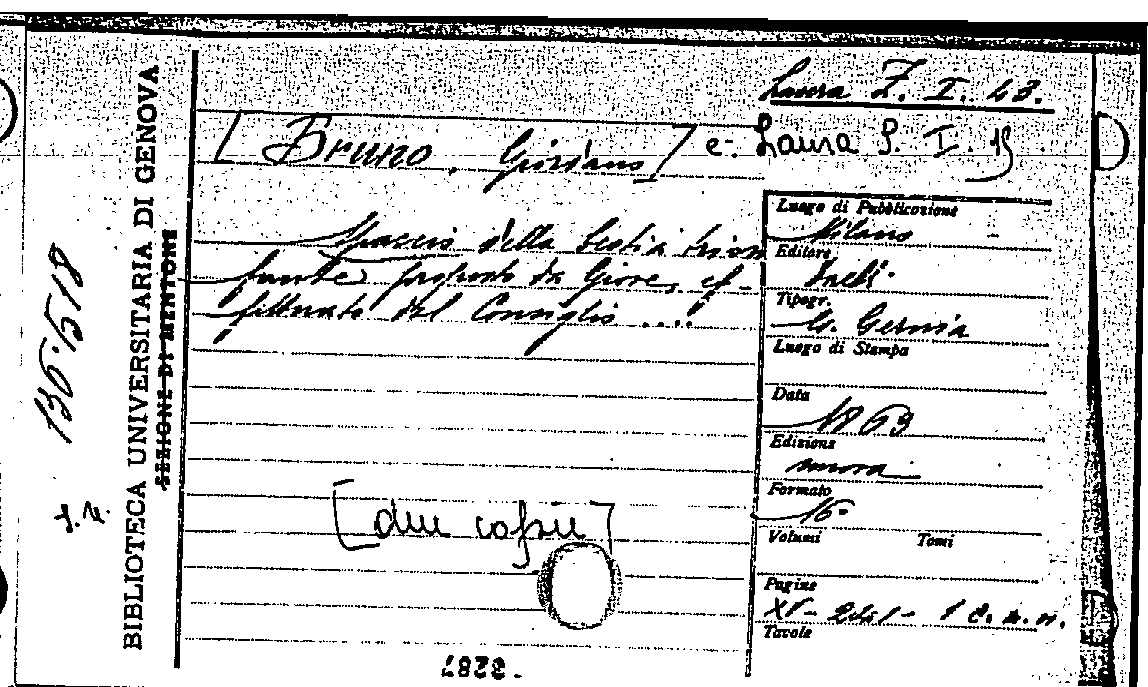 Laura Z. I. 43.
[Bruno, Giordano] e. Laura S. I. 15
Spaccio della bestia trion
fante proposto da Giove, ef-
fettuato dal Consiglio ....
[due copie]
Luogo di Pubblicazione
Milano
Editore
Tipogr.
G. Gernia
Luogo di Stampa
Data
1863
Edizione
nuova
Formato
16°
Volumi Tomi
Pagine
XV- 1 c. n. n.
Tavole
BIBLIOTECA UNIVERSITARIA DI GENOVA
SEZIONE DI MENTONE
136518
3287